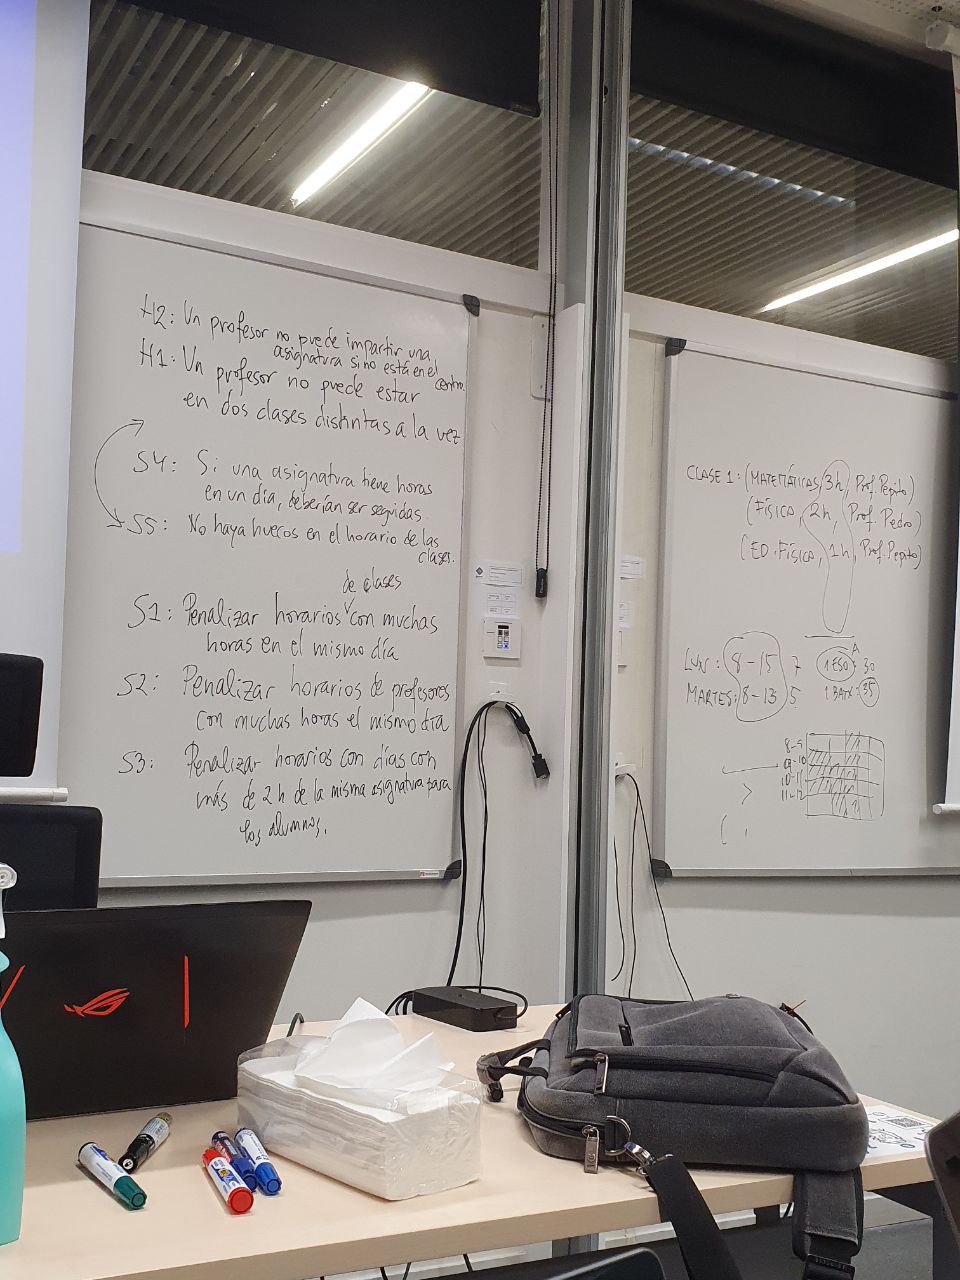 H2: Un profesor no puede impartir una
asignatura si no está en el centro.
H1: Un profesor no puede estar
en dos clases distintas a la vez
S4: Si una asignatura tiene horas
en un día, deberían ser seguidas.
S5: No haya huecos en el horario de las
clases.
de clases
S1: Penalizar horarios con muchas
horas en el mismo día
S2: Penalizar horarios de profesores
con muchas horas el mismo día
S3: Penalizar horarios con días con
más de 2h de la misma asignatura para
los alumnos.
CLASE 1: (MATEMÁTICAS, 3h, Prof. Pepito)
(FÍSICA, 2h, Prof. Pedro)
(ED. FÍSICA, 1h, Prof. Pepito)
LUN: 8-15 7
MARTES: 8-13 5
A
1 ESO: 30
1 BATX: 35
8-9
9-10
10-11
11-12